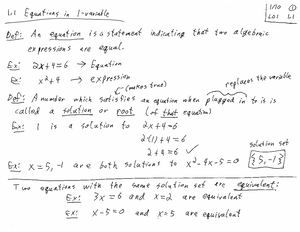 1.1 Equations in 1-variable
1170 ①
LO1 1.1
Def: An equation is a statement indicating that two algebraic
expressions are equal.
Ex: 2x+4=6 → Equation
Ex: x²+9 → expression
(makes true)
replaces the variable
Def: A number which satisfies an equation when plugged in to is is
called a solution or root (of that equation)
Ex: 1 is a solution to 2x+4=6
2(1)+4=6
2+4=6 ✓
solution set
Ex: x=5,-1 are both solutions to x²-4x-5=0 {5,-1}
Two equations with the same solution set are equivalent:
Ex: 3x=6 and x=2 are equivalent
Ex: x-5=0 and x=5 are equivalent